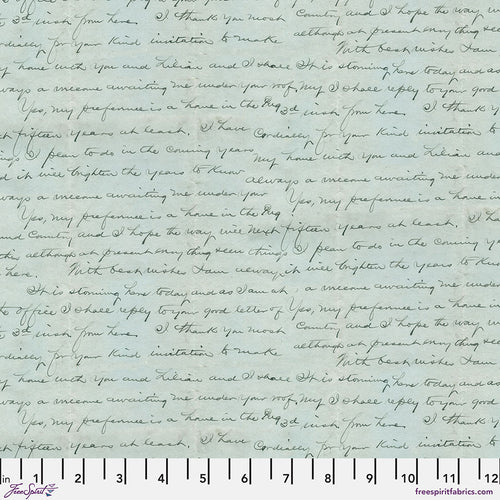 3rd inst from here. I thank you most Country and I hope the way w
ordially for your kind invitation to make although at present everything seem
With best wishes I am
y home with you and Lilian and I shall It is storming here today and as
ways a welcome awaiting me under your roof, My I shall reply to your good
Yes, my preference is a home in the 3rd inst from here. I thank y
xt fifteen years at least. I have Cordially for your kind invitation to
ings I plan to do in the coming years my home with you and Lilian and
d it will brighten the years to know always a welcome awaiting me under
always a welcome awaiting me under your
Yes, my preference is a home in the
und Country and I hope the way will next fifteen years at least. I
although at present everything seem things I plan to do in the coming y
here. With best wishes I am always it will brighten the years to kno
It is storming here today and as I am at a welcome awaiting me under
he office I shall reply to your good letter of Yes, my preference is a home in
3rd inst from here. I thank you most Country and I hope the way
ordially for your kind invitation to make although at present everything see
With best wishes I am
y home with you and Lilian and I shall It is storming here today and as
ways a welcome awaiting me under your roof, My I shall reply to your good
Yes, my preference is a home in the 3rd inst from here. I thank y
xt fifteen years at least. I have Cordially for your kind invitation to
in 1 2 3 4 5 6 7 8 9 10 11 12
FreeSpirit freespiritfabrics.com